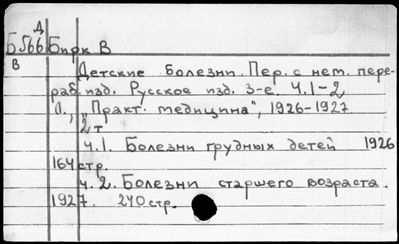 Д
Б566 Бирк В
В
Детские болезни. Пер. с нем. пере-
раб. изд. Русское изд. 3-е. Ч.1-2
Л., "Практ. медицина", 1926-1927
2 т
Ч.1. Болезни грудных детей 1926
164 стр.
Ч.2. Болезни старшего возраста.
1927. 240 стр.